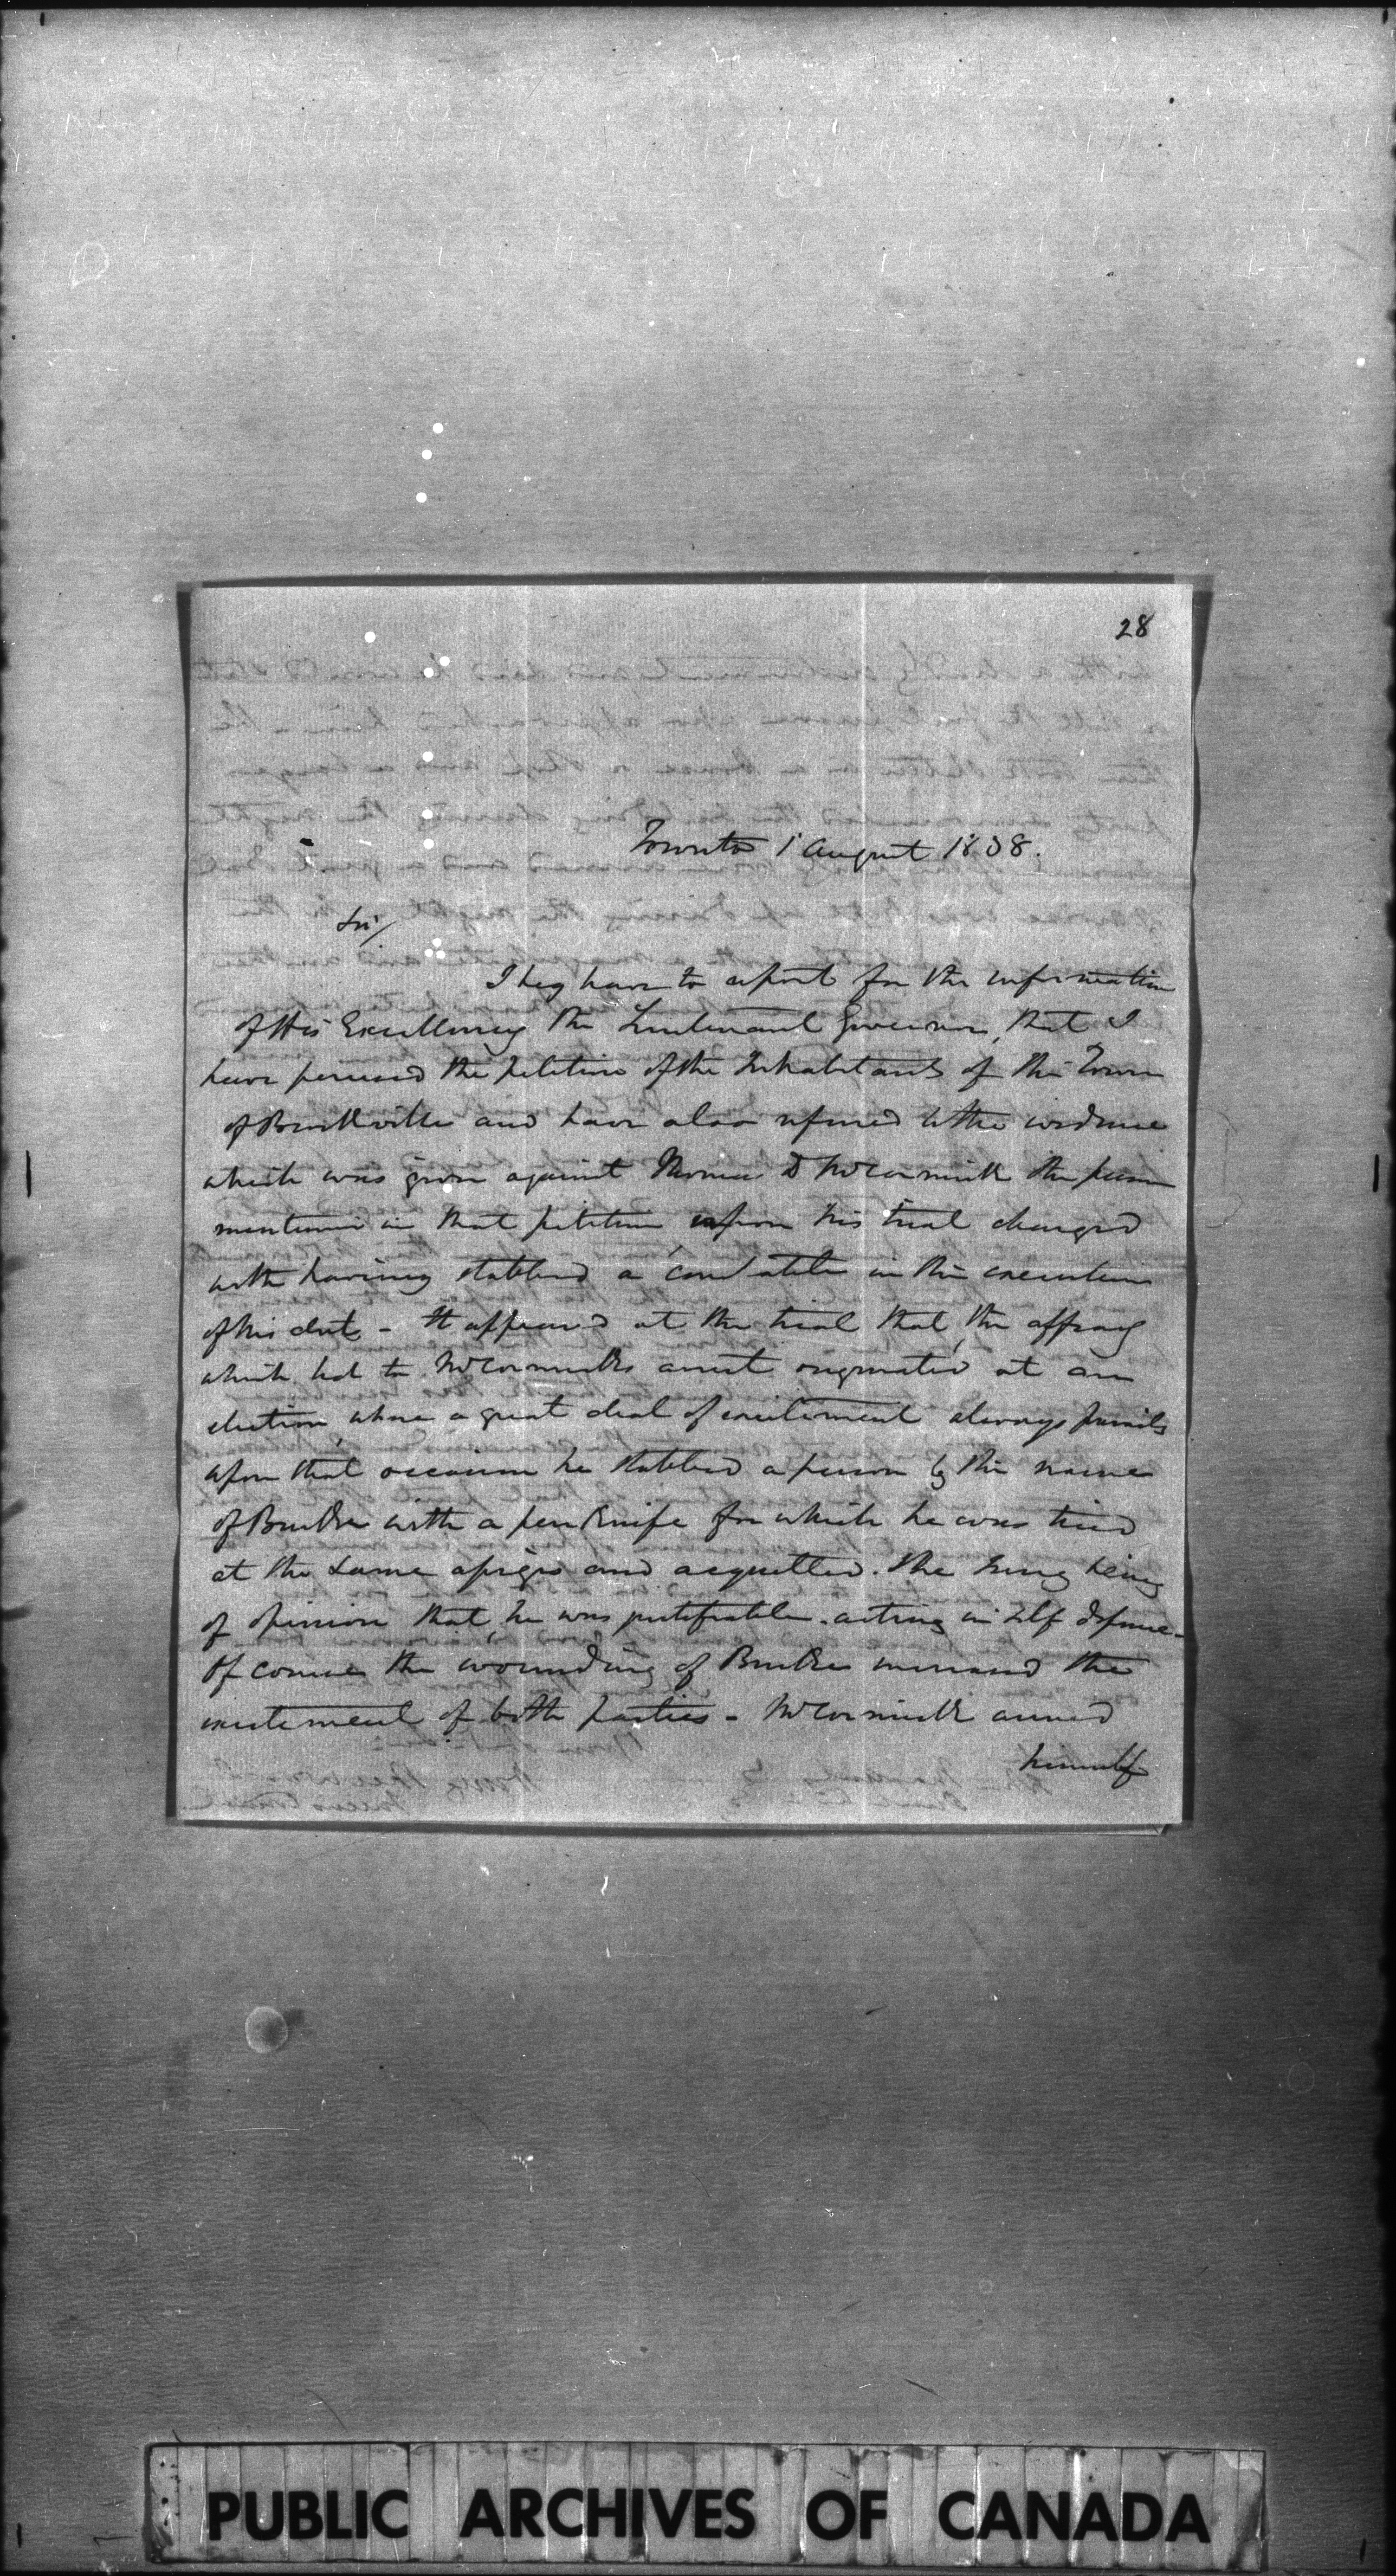 28
Toronto 1 August 1838.
Sir/
I beg leave to report for the information
of His Excellency the Lieutenant Governor, that I
have perused the petition of the Inhabitants of the Town
of Brockville and have also referred to the evidence
which was given against Thomas D McCormick the person
mentioned in that petition, upon his trial charged
with having stabbed a constable in the execution
of his duty - It appeared at the trial that the affray
which led to McCormicks arrest originated at an
election, where a great deal of excitement always prevails
upon that occasion he stabbed a person by the name
of Burke with a penknife for which he was tried
at the same assizes and acquitted. the Jury being
of opinion that he was justifiable. acting in self defence -
Of course the wounding of Burke increased the
excitement of both parties - McCormick armed
himself
PUBLIC ARCHIVES OF CANADA